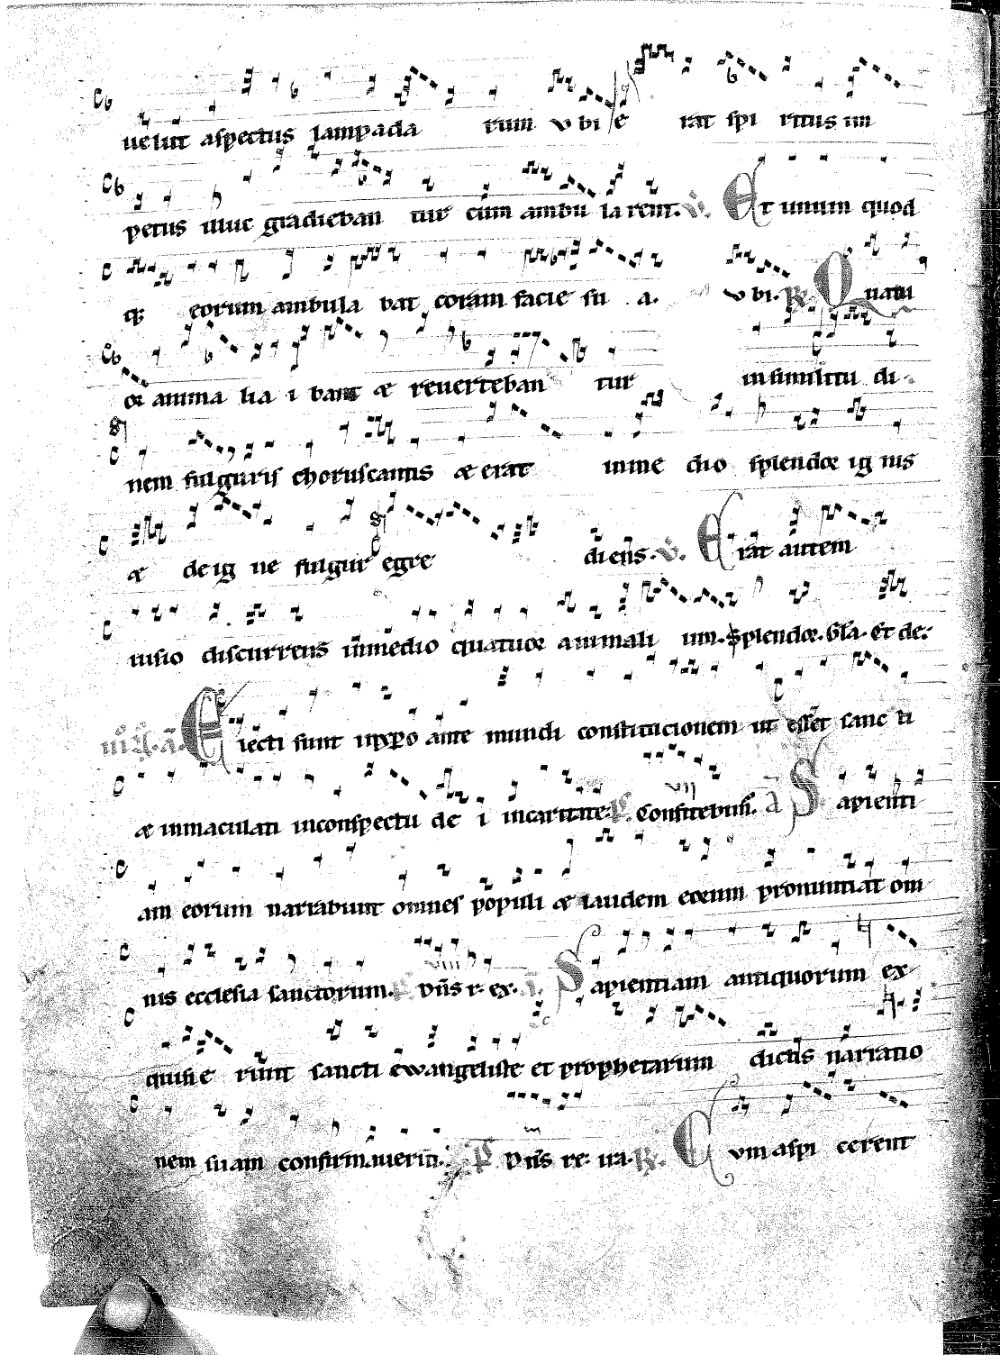 uelut aspectus lampada rum v bi e rat spi ritus im
petus illuc gradieban tur cum ambu la rent. V. Et unum quod
q; eorum ambula bat coram facie su a. v bi. R. Quatu
or anima lia i bant & reuerteban tur insimilitu di
nem fulguris choruscantis & erat inme dio splendor ig nis
& de ig ne fulgur egre diens. V. Erat autem
uisio discurrens inmedio quatuor animali um. Splendor. Gla. Et de.
Electi sunt inxpo ante mundi constitucionem ut essent sanc ti
& inmaculati inconspectu de i incaritate. P. Confitebim. A Sapienti
am eorum narrabunt omnes populi & laudem eorum pronuntiat om
nis ecclesia sanctorum. P. Dns r. ex. A. Sapientiam antiquorum ex
quisie runt sancti ewangeliste et prophetarum dictis narratio
nem suam confirmauerunt. P Dns re. ua. R. Cvm aspi cerent